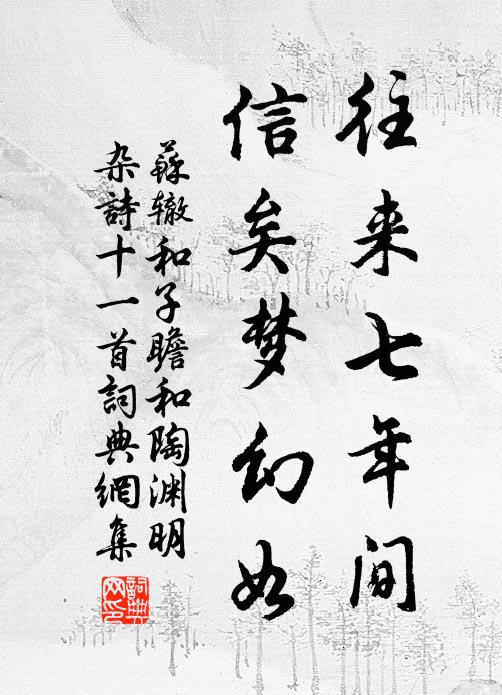 往来七年间
信矣梦幻如
蘇辙和子瞻和陶渊明
杂詩十一首詞典網集
詞典網印